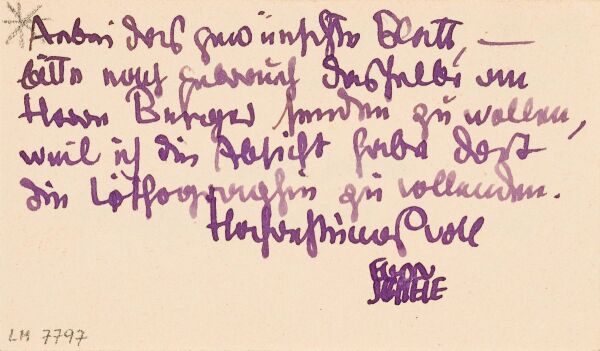 Anbei das gewünschte Blatt, —
bitte nach Gebrauch dasselbe an
Herrn Berger senden zu wollen,
weil ich die Absicht habe dort
die Lithographie zu vollenden.
Hochachtungsvoll
EGON
SCHIELE
LM 7797